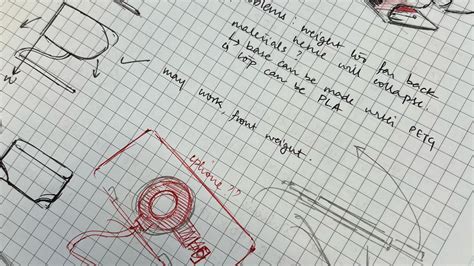 oblems: weight too far back
hence will collapse.
materials?
↳ base can be made PETG
↳ top can be PLA
may work, front weight.
W
iphone??